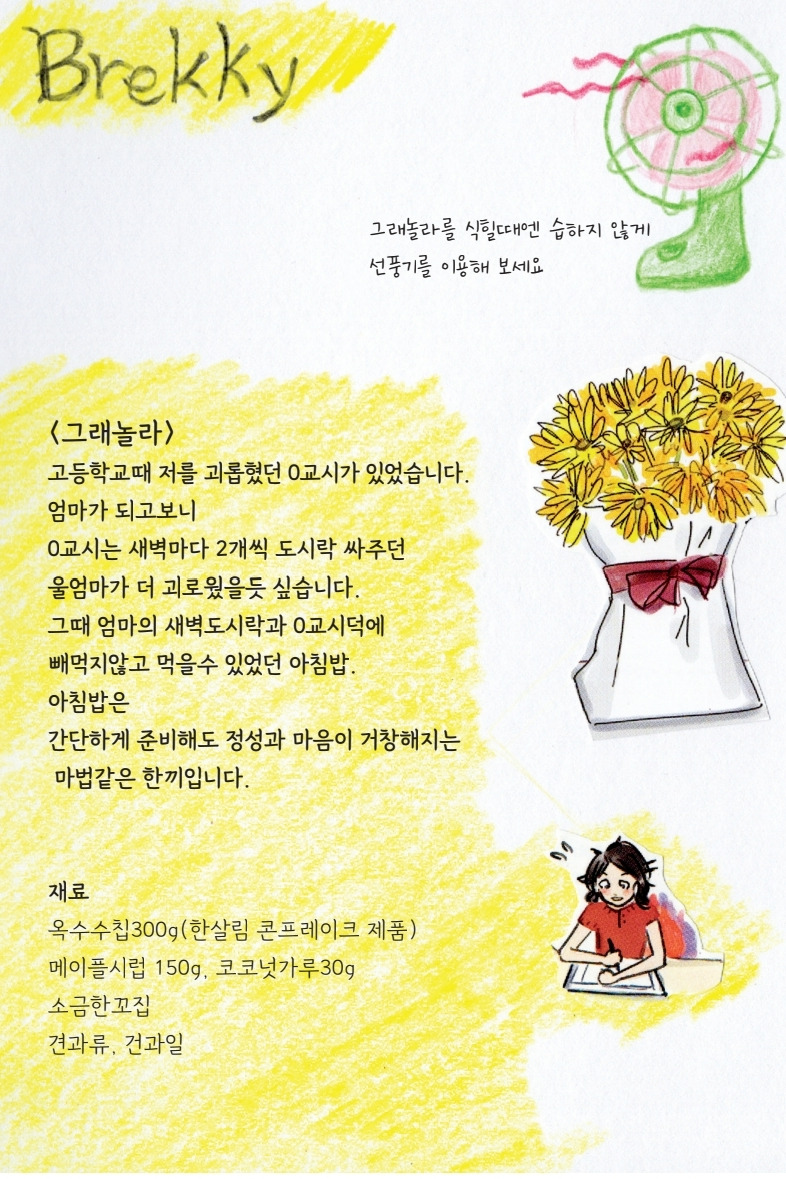 Brekky
그래놀라를 식힐때엔 습하지 않게
선풍기를 이용해 보세요
<그래놀라>
고등학교때 저를 괴롭혔던 0교시가 있었습니다.
엄마가 되고보니
0교시는 새벽마다 2개씩 도시락 싸주던
울엄마가 더 괴로웠을듯 싶습니다.
그때 엄마의 새벽도시락과 0교시덕에
빼먹지않고 먹을수 있었던 아침밥.
아침밥은
간단하게 준비해도 정성과 마음이 거창해지는
마법같은 한끼입니다.
재료
옥수수칩300g(한살림 콘프레이크 제품)
메이플시럽 150g, 코코넛가루30g
소금한꼬집
견과류, 건과일